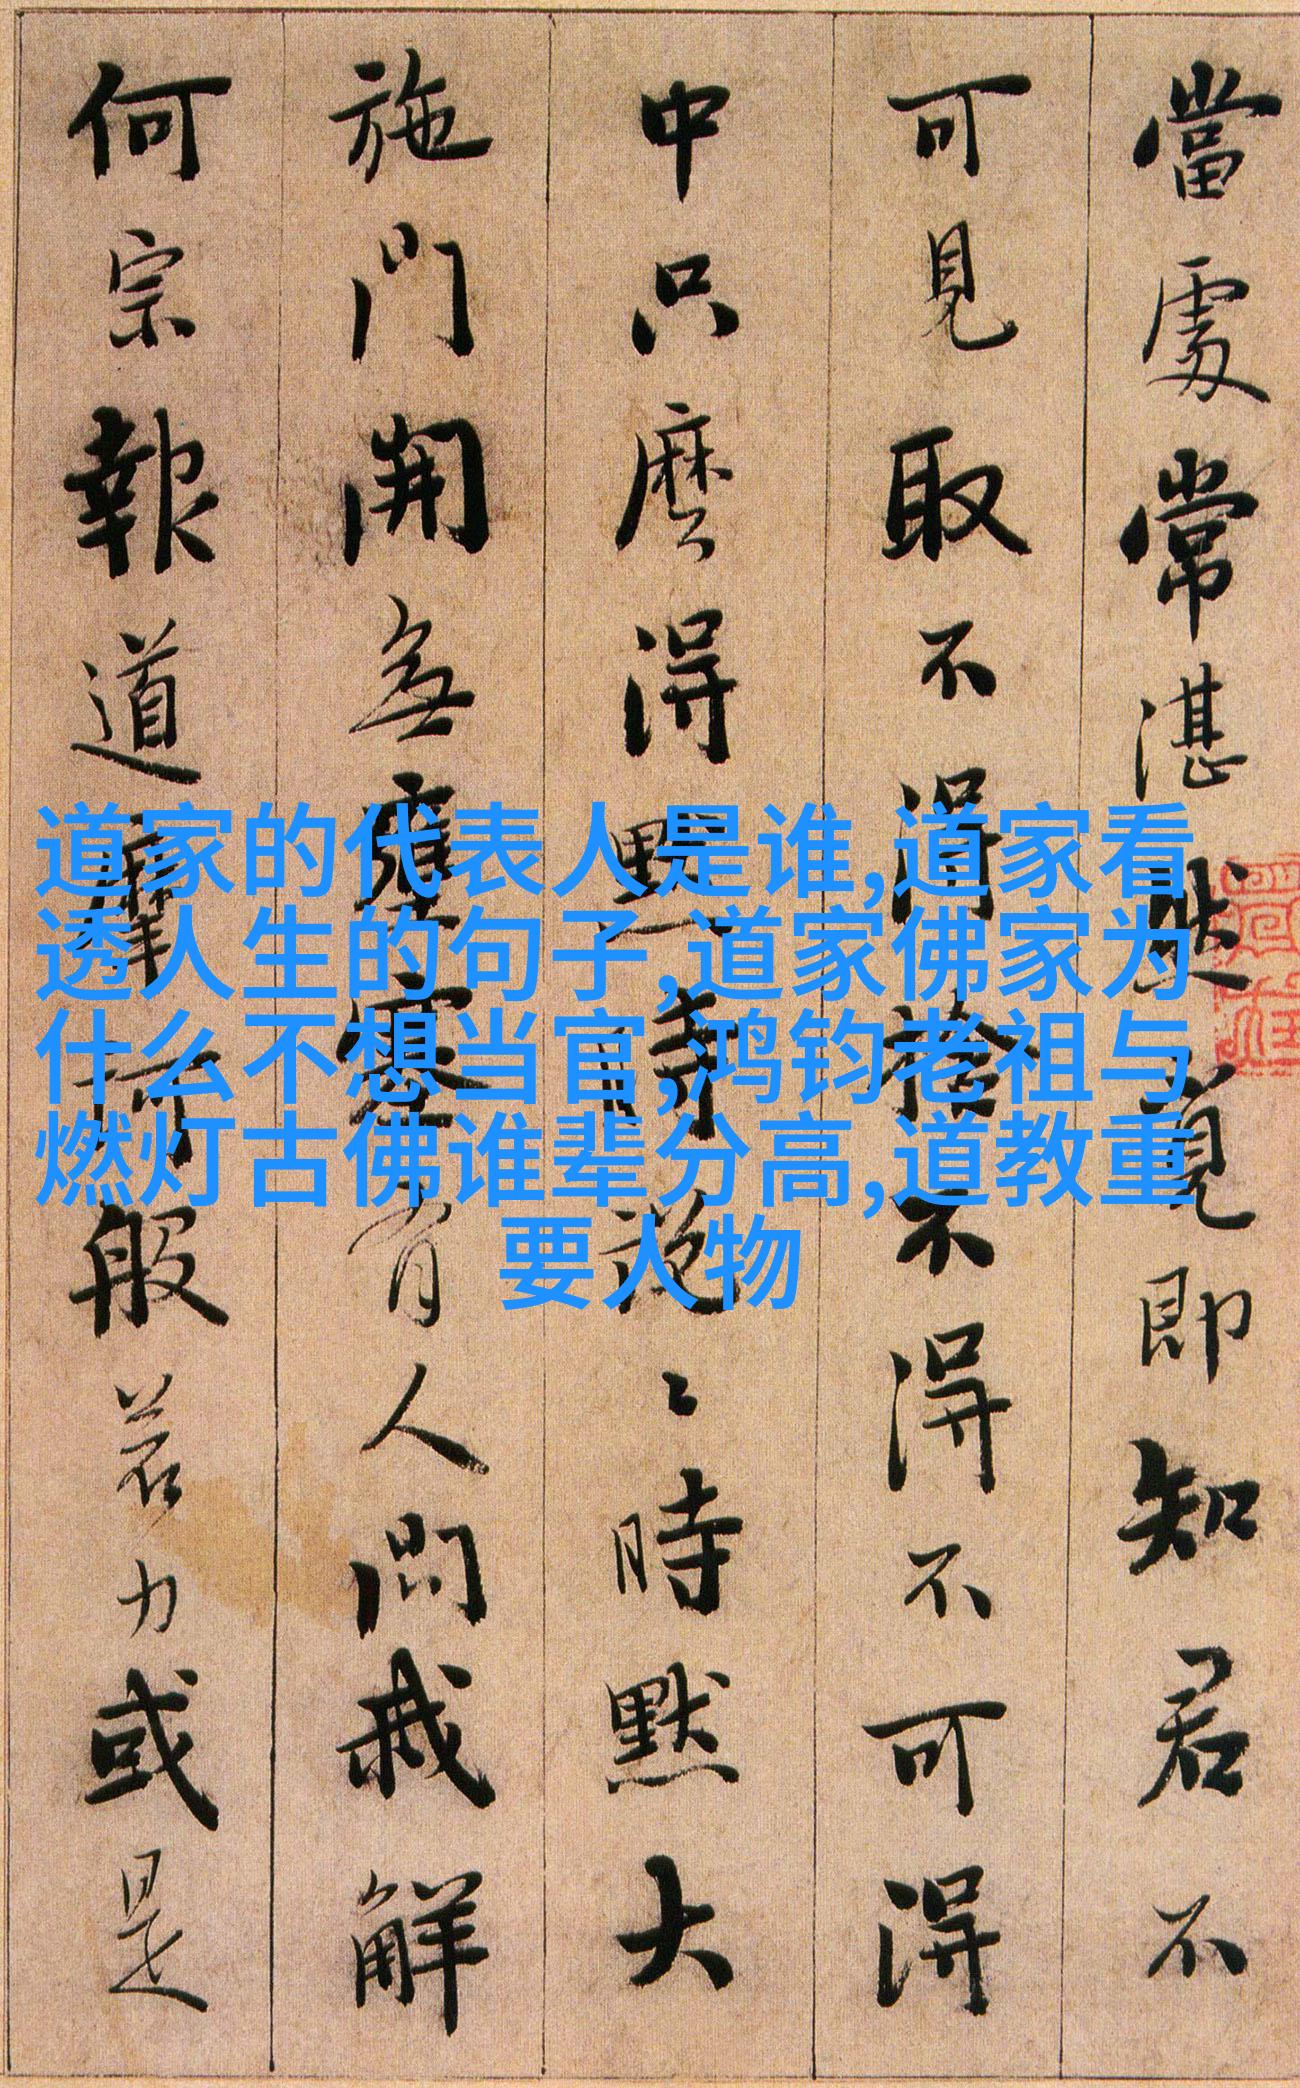 當處常湛然覓即知君不
可見取不得捨不得不可得
中只麼得默時說〻時默大
施門開無壅塞有人問我解
何宗報道摩訶般若力或是
道家的代表人是谁,道家看
透人生的句子,道家佛家为
什么不想当官,鸿钧老祖与
燃灯古佛谁辈分高,道教重
要人物